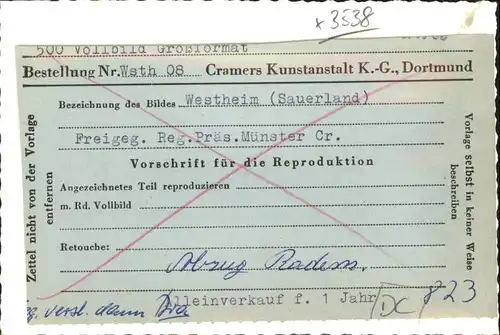 x 3538
500 Vollbild Großformat
Bestellung Nr. Wsth 08 Cramers Kunstanstalt K.-G., Dortmund
Bezeichnung des Bildes Westheim (Sauerland)
Freigeg. Reg.Präs.Münster Cr.
Vorschrift für die Reproduktion
Angezeichnetes Teil reproduzieren
m. Rd. Vollbild
Retouche:
Abzug Radem.
verst. dann
Alleinverkauf f. 1 Jahr
DC 823
Zettel nicht von der Vorlage
entfernen
Vorlage selbst in keiner Weise
beschreiben